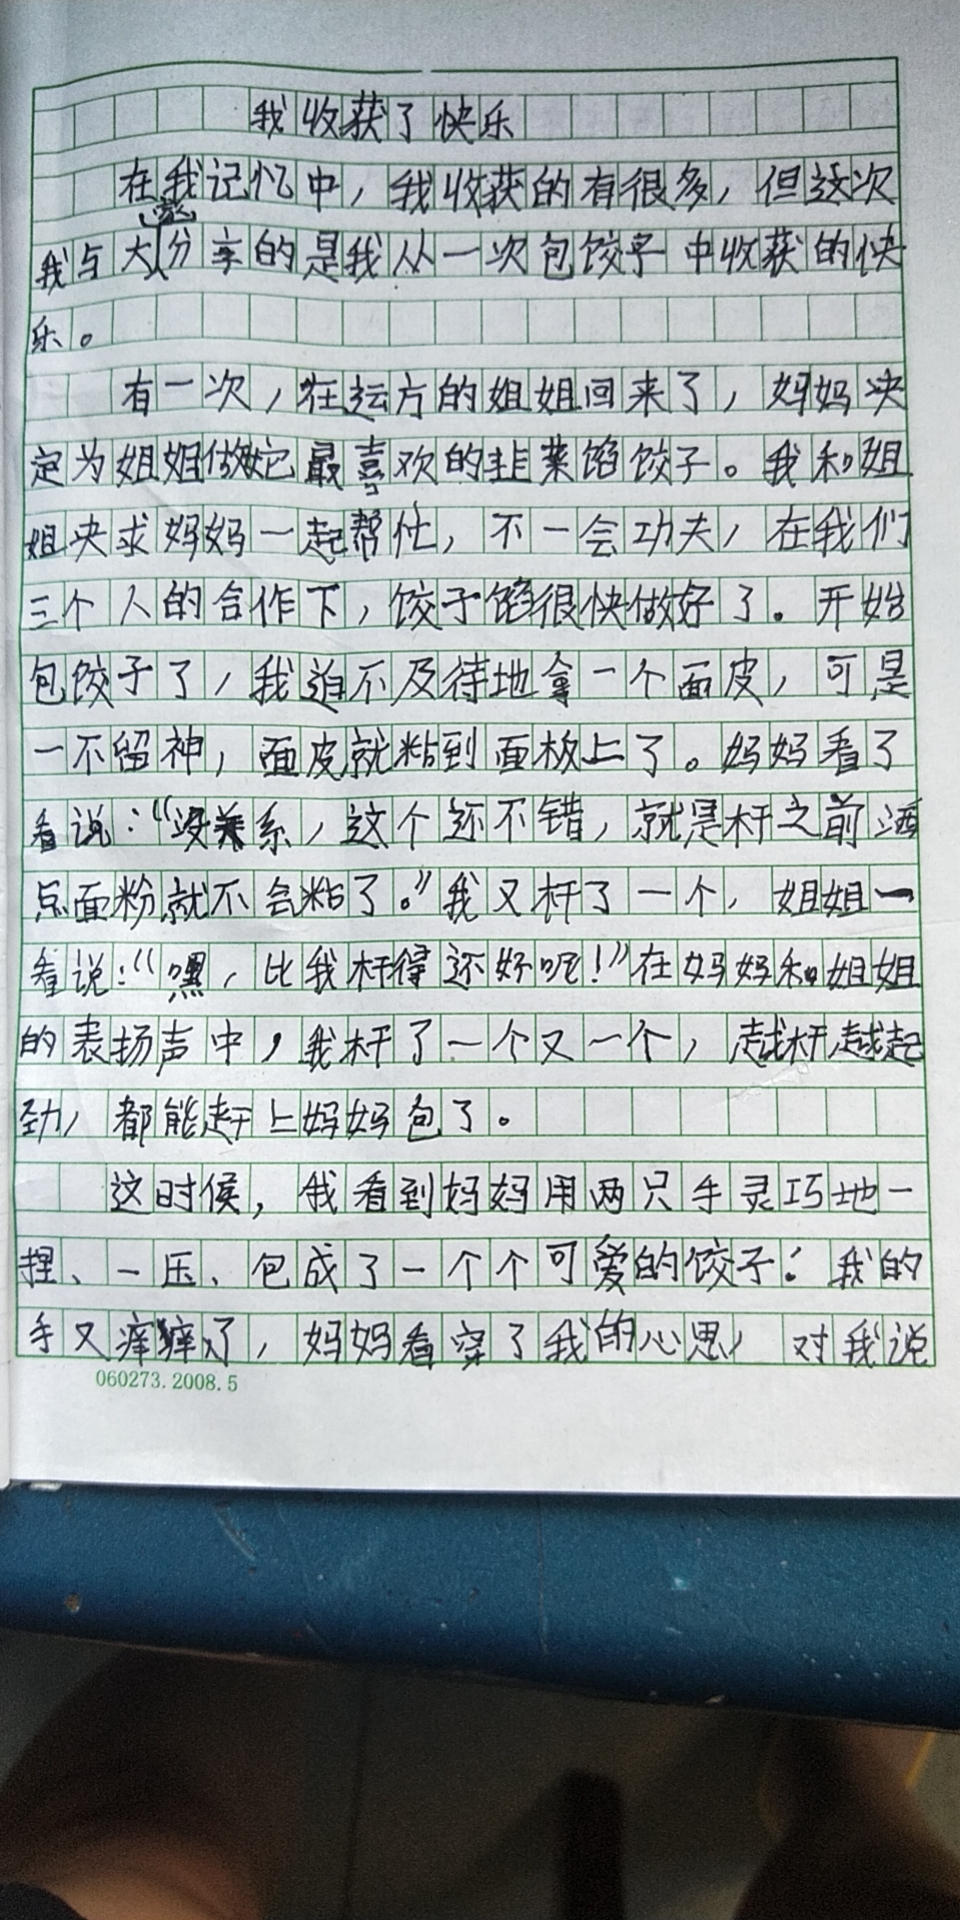 我收获了快乐
在我记忆中，我收获的有很多，但这次
我与大家分享的是我从一次包饺子中收获的快
乐。
有一次，在远方的姐姐回来了，妈妈决
定为姐姐做她最喜欢的韭菜馅饺子。我和姐
姐央求妈妈一起帮忙，不一会功夫，在我们
三个人的合作下，饺子馅很快做好了。开始
包饺子了，我迫不及待地拿一个面皮，可是
一不留神，面皮就粘到面板上了。妈妈看了
看说：“没关系，这个还不错，就是杆之前洒
点面粉就不会粘了。”我又杆了一个，姐姐一
看说：“嘿，比我杆得还好呢！”在妈妈和姐姐
的表扬声中，我杆了一个又一个，越杆越起
劲，都能赶上妈妈包了。
这时候，我看到妈妈用两只手灵巧地一
捏、一压、包成了一个个可爱的饺子！我的
手又痒痒了，妈妈看穿了我的心思，对我说
060273.2008.5